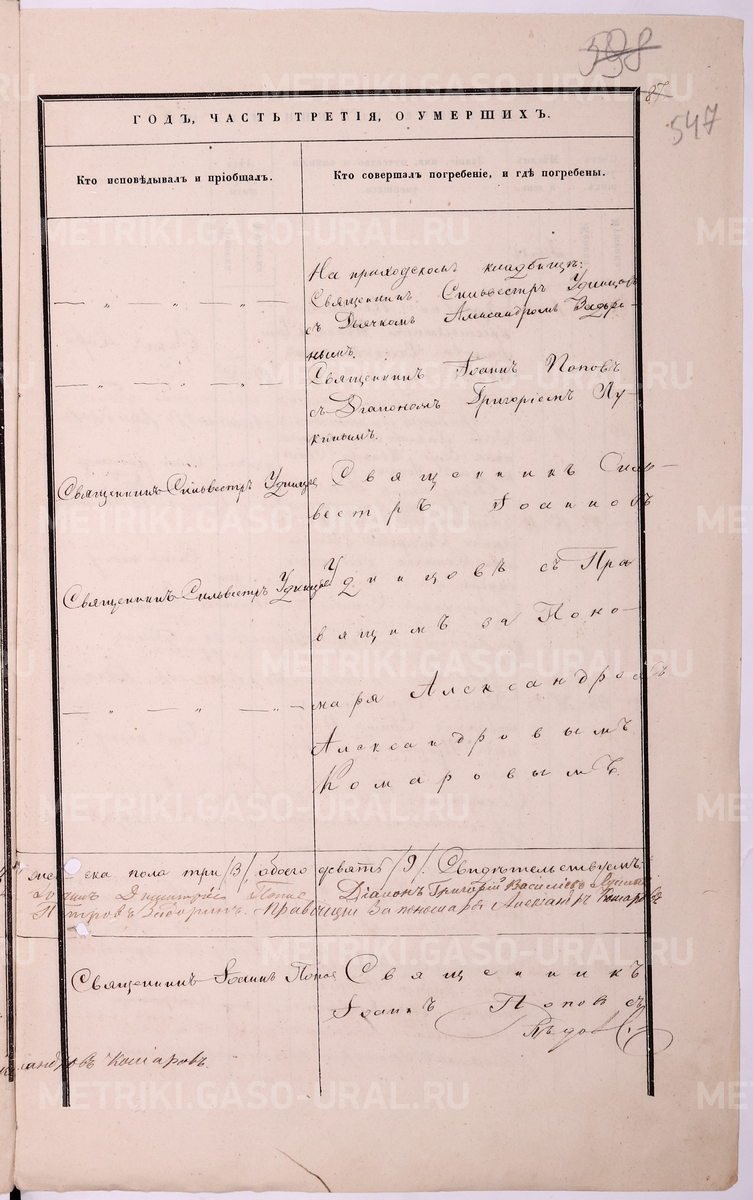 598
87
547
ГОДЪ, ЧАСТЬ ТРЕТІЯ, О УМЕРШИХЪ.
Кто исповѣдывалъ и пріобщалъ.
Кто совершалъ погребеніе, и гдѣ погребены.
На приходскомъ кладбищѣ:
Священникъ Сильвестръ Удинцовъ
съ Дьячкомъ Александромъ
нымъ.
Священникъ Іоаннъ Поповъ
съ Діакономъ Григоріемъ Лу-
кинымъ.
Священникъ Сильвестръ Удинцевъ
Священникъ Силь-
вестръ Іоанновъ
Священникъ Сильвестръ Удинцевъ
Удинцовъ съ Пра
вящимъ за Поно-
маря Александромъ
Александровымъ
Комаровымъ.
пола три /3/, обоего девять /9/. Свидѣтельствуемъ:
Димитріевъ Поповъ Діаконъ Григорій Васильевъ
Петровъ Правящій за пономаря Александръ Комаровъ
Священникъ Іоаннъ Поповъ
Священникъ
Іоаннъ Поповъ съ
Комаровъ.
METRIKI.GASO-URAL.RU